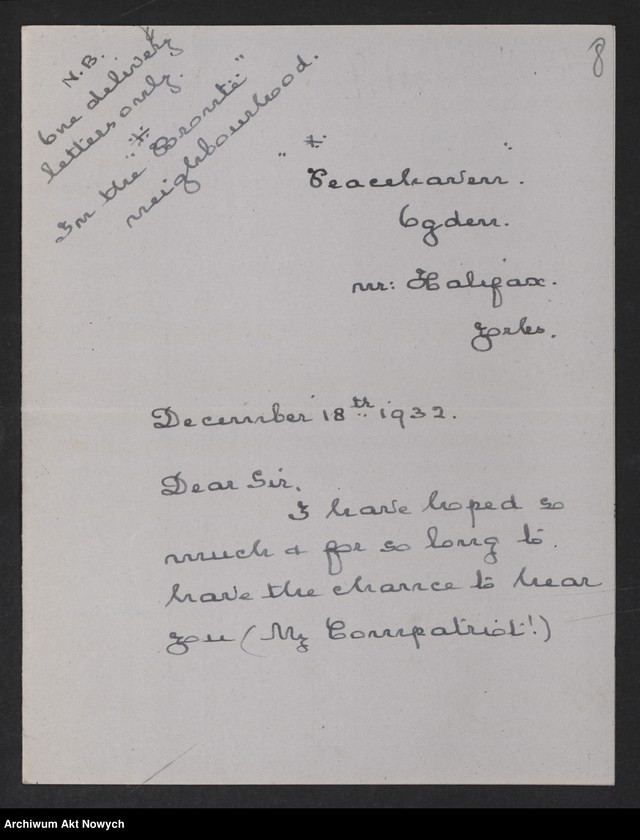 N.B.
One delivery
letters only.
※
In the "Bronte"
neighbourhood.
8
※
"Peacehaven".
Ogden.
nr: Halifax.
Yorks.
December 18th 1932.
Dear Sir.
I have hoped so
much & for so long to
have the chance to hear
you (My Compatriot!)
Archiwum Akt Nowych